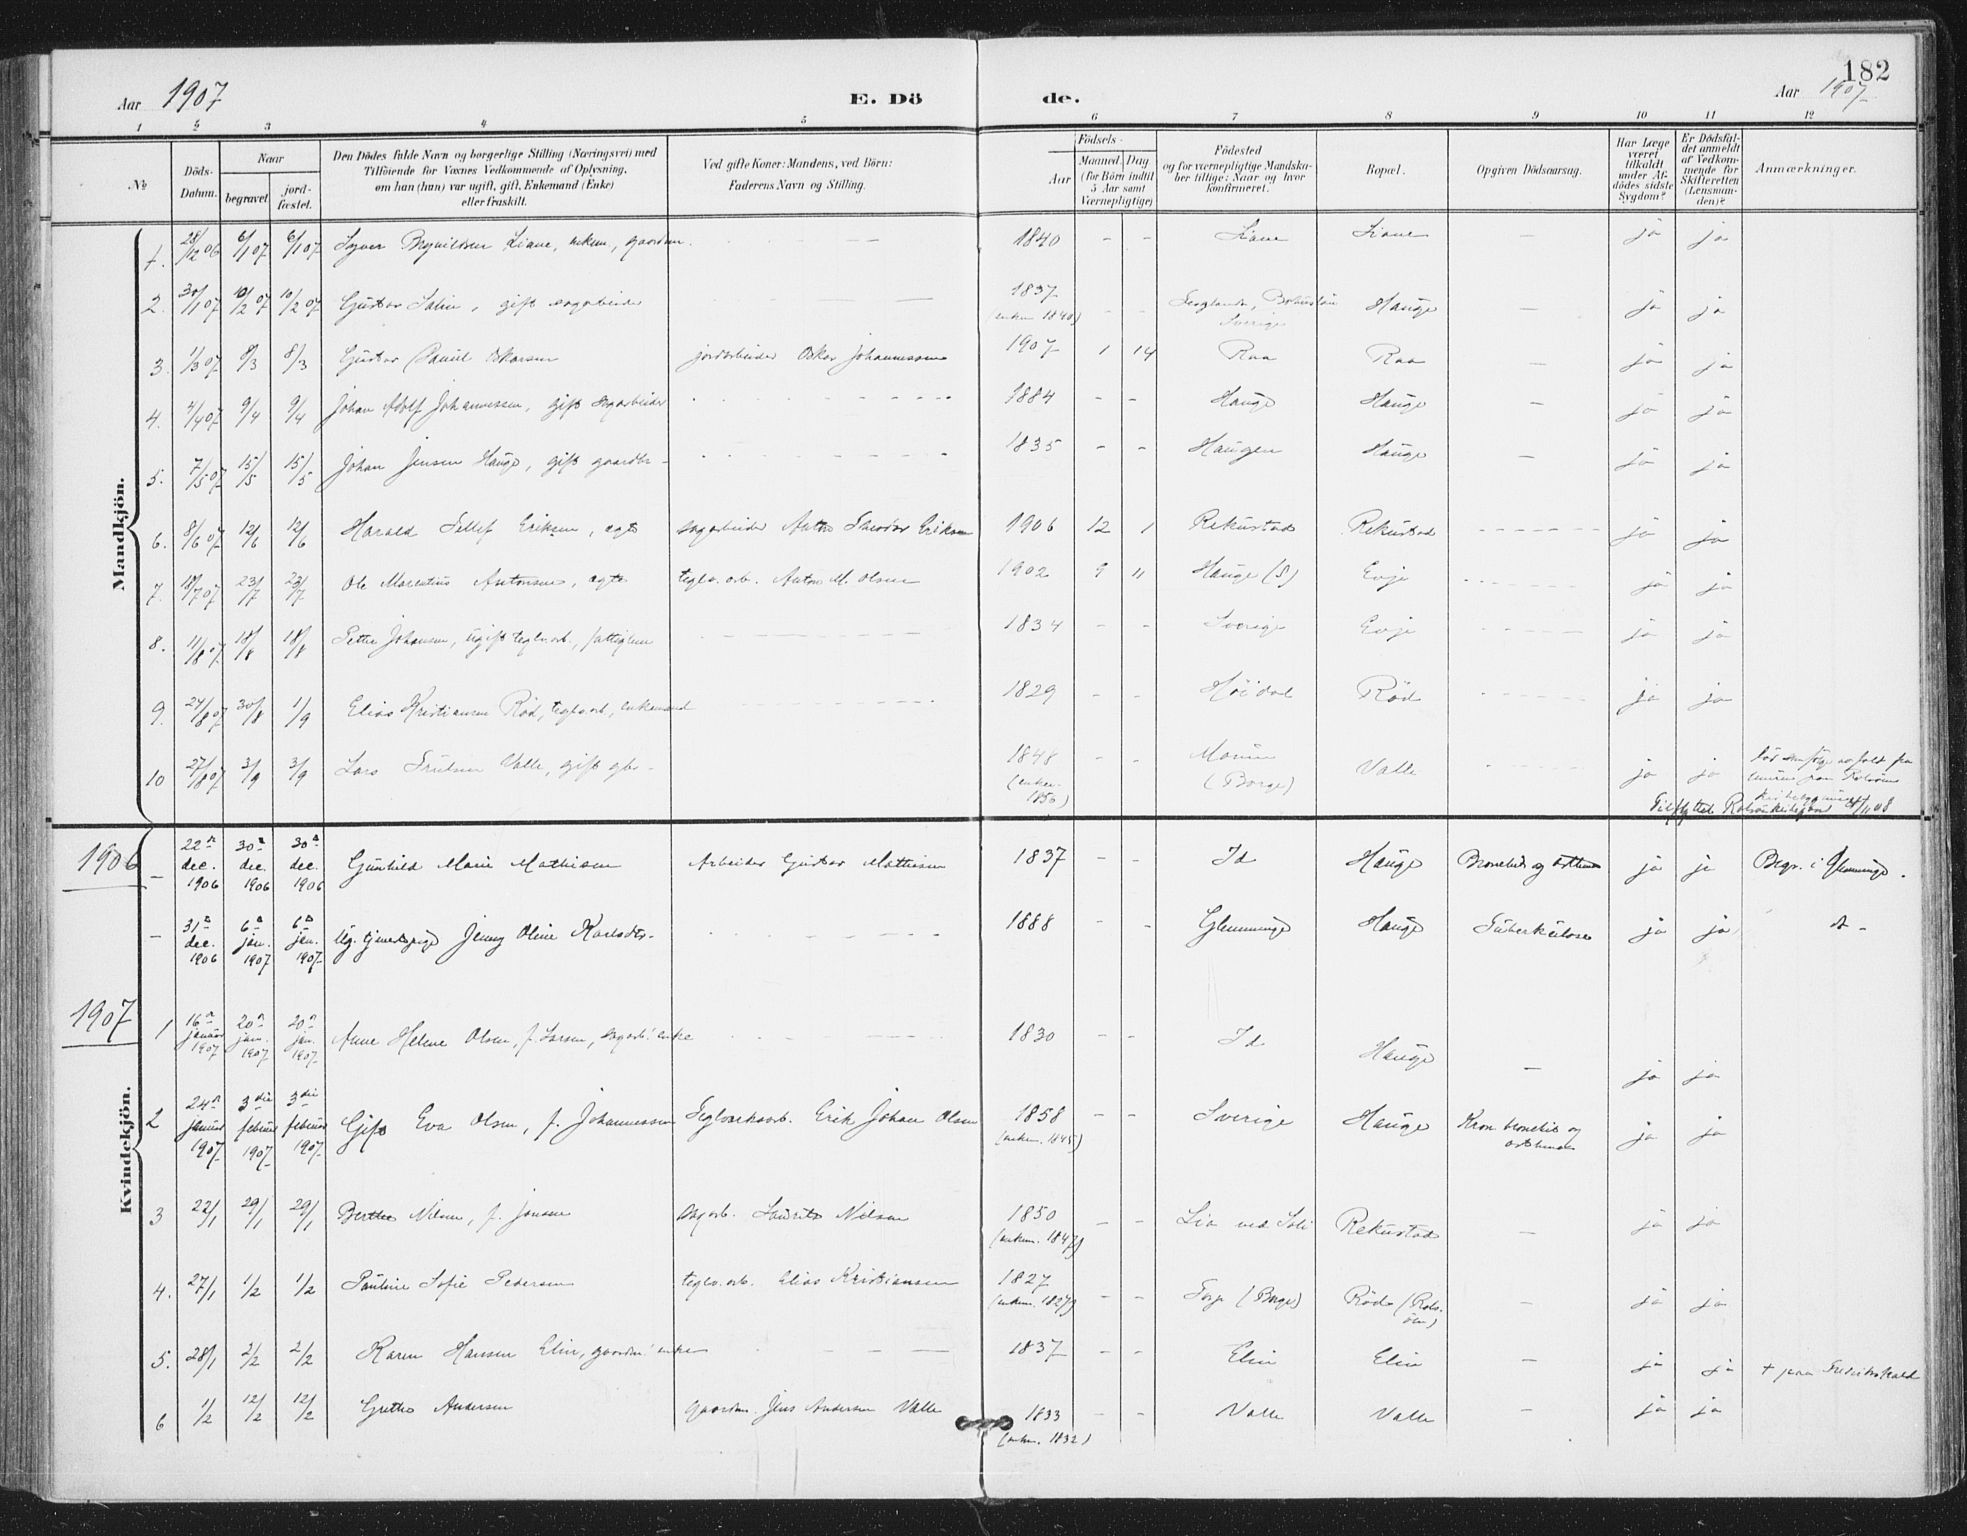 182
Aar 1907
E. Dö
de.
Aar 1907
1 2 3 4 5 6 7 8 9 10 11 12
№
Döds-
Datum.
Naar
begravet.
jord-
fæstet.
Den Dödes fulde Navn og borgerlige Stilling (Næringsvei) med
Tilföiende for Voxnes Vedkommende af Oplysning,
om han (hun) var ugift, gift, Enkemand (Enke)
eller fraskilt.
Ved gifte Koner: Mandens, ved Börn:
Faderens Navn og Stilling.
Födsels-
Aar
Maaned. Dag
(for Börn indtil
5 Aar samt
Værnepligtige)
Födested
og for værnepligtige Mandska-
ber tillige: Naar og hvor
konfirmeret.
Bopæl.
Opgiven Dödsaarsag.
Har Læge
været
tilkaldt
under Af-
dödes sidste
Sygdom?
Er Dödsfal-
det anmeldt
af Vedkom-
mende for
Skifteretten
(Lensman-
den)?
Anmærkninger.
Mandkjön.
1. 28/12 06 6/1 07 6/1 07 Liane, enkem, gaardm. 1840 - - Liane Liane - ja ja
2. 30/1 07 10/2 07 10/2 07 Gustav Salin, gift sagarbeider 1837 - - Bohuslän Hauge - ja ja
(enkem 1840) Sverige
3. 1/3 07 8/3 8/3 Gustav Daniel Oskarsen jordarbeider Oskar Johannessen 1907 1 14 Raa Raa - ja ja
4. 4/4 07 9/4 9/4 Johan Adolf Johannessen, gift sagarbeider 1884 - - Hauge Hauge - ja ja
5. 7/5 07 15/5 15/5 Johan Jensen Hauge, gift gaardbr- 1835 - - Haugen Hauge - ja ja
6. 8/6 07 12/6 12/6 Harald Tellef Eriksen, egte sagarbeider Anton Theodor Eriksen 1906 12 1 Rekustad Rekustad ja ja
7. 18/7 07 23/7 23/7 Ole Marentius Antonsen, egte teglv. arb. Anton M. Olsen 1902 9 11 Hauge (S) Evje ja ja
8. 11/8 07 18/8 18/8 Petter Johansen, ugift teglv.arb., fattiglem 1834 - - Sverige Evje ja ja
9. 24/8 07 30/8 1/9 Elias Kristiansen Röd, teglv.arb., enkemand 1829 - - Höidal Röd ja ja
10 27/8 07 3/9 3/9 Lars Trulsen Valle, gift gbr- 1848 - - (Borge) Valle ja ja
(enkem. 1850)
1906
22n dec. 1906 30n dec. 1906 30n dec. 1906 Gunhild Marie Mathisen Arbeider Gustav Mathisen 1837 - - Id Hauge Bronchit og asthma ja ja Begr. i Glemminge.
31n dec. 1906 6n jan. 1907 6n jan. 1907 Ug. tjenestepige Jenny Oline Karlsdtr. 1888 - - Glemminge Hauge Tuberkulose ja ja
1907
Kvindekjön.
1 16n januar 1907 20n jan. 1907 20n jan. 1907 Anne Helene Olsen, f. Larsen, sagarb. enke 1830 - - Id Hauge - ja ja
2 24n januar 1907 3die februar 1907 3die februar 1907 Gift Eva Olsen, f. Johannessen Teglverksarb. Erik Johan Olsen 1858 - - Sverige Hauge Kron. bronchit og asthma ja ja
(enkem. 1845)
3 22/1 29/1 29/1 Berthe Nilsen, f. Jensen sagarb. Laurits Nilsen 1850 - - Lia ved Soli Rekustad - ja ja
(enkem. 1847)
4. 27/1 1/2 1/2 Pauline Sofie Pedersen teglv. arb. Elias Kristiansen 1827 - - Torp (Borge) Röd (Rolsöen) - ja ja
(enkem. 1827)
5. 28/1 2/2 2/2 Karen Hansen Elin, gaardm. enke 1837 - - Elin Elin - ja ja + paa Fredrikshald
6 1/2 12/2 12/2 Grethe Andersen gaardm. Jens Andersen Valle 1833 - - Valle Valle - ja ja
(enkem. 1832)